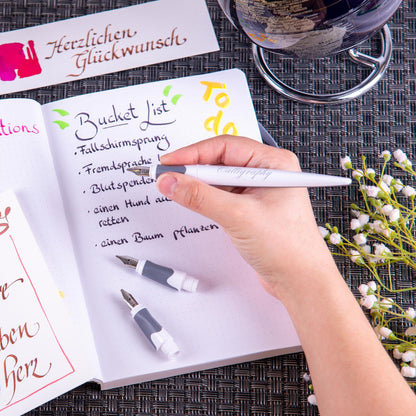 Herzlichen
Glückwunsch
Bucket List
To
do
• Fallschirmsprung
• Fremdsprache
• Blutspenden
• einen Hund
retten
• einen Baum pflanzen
Calligraphy
herz